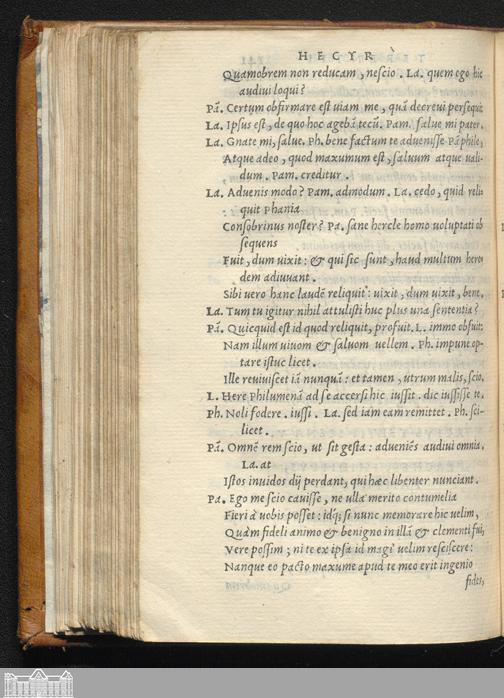 HECYRÀ
Quamobrem non reducam, nescio. La. quem ego hic
audiui loqui?
Pā. Certum obfirmare est uiam me, quā decreui persequi.
La. Ipsus est, de quo hoc agebā tecū. Pam. salue mi pater.
La. Gnate mi, salue. Ph. bene factum te aduenisse Pāphile,
Atque adeo, quod maxumum est, saluum atque uali-
dum. Pam. creditur.
La. Aduenis modo? Pam. admodum. La. cedo, quid reli-
quit Phania
Consobrinus noster? Pa. sane hercle homo uoluptati ob
sequens
Fuit, dum uixit: & qui sic sunt, haud multum here
dem adiuuant.
Sibi uero hanc laudē reliquit: uixit, dum uixit, bene.
La. Tum tu igitur nihil attulisti huc plus una sententia?
Pā. Quicquid est id quod reliquit, profuit. L. immo obfuit:
Nam illum uiuom & saluom uellem. Ph. impune op-
tare istuc licet.
Ille reuiuiscet iā nunquā: et tamen, utrum malis, scio.
L. Here Philumenā ad se accersi hic iussit. dic iussisse te.
Ph. Noli fodere. iussi. La. sed iam eam remittet. Ph. sci-
licet.
Pā. Omnē rem scio, ut sit gesta: adueniēs audiui omnia.
La. at
Istos inuidos dij perdant, qui hæc libenter nunciant.
Pa. Ego me scio cauisse, ne ulla merito contumelia
Fieri à uobis posset: idq; si nunc memorare hic uelim,
Quàm fideli animo & benigno in illā & clementi fui,
Vere possim; ni te ex ipsa id magi' uelim resciscere:
Nanque eo pacto maxume apud te meo erit ingenio
fides,